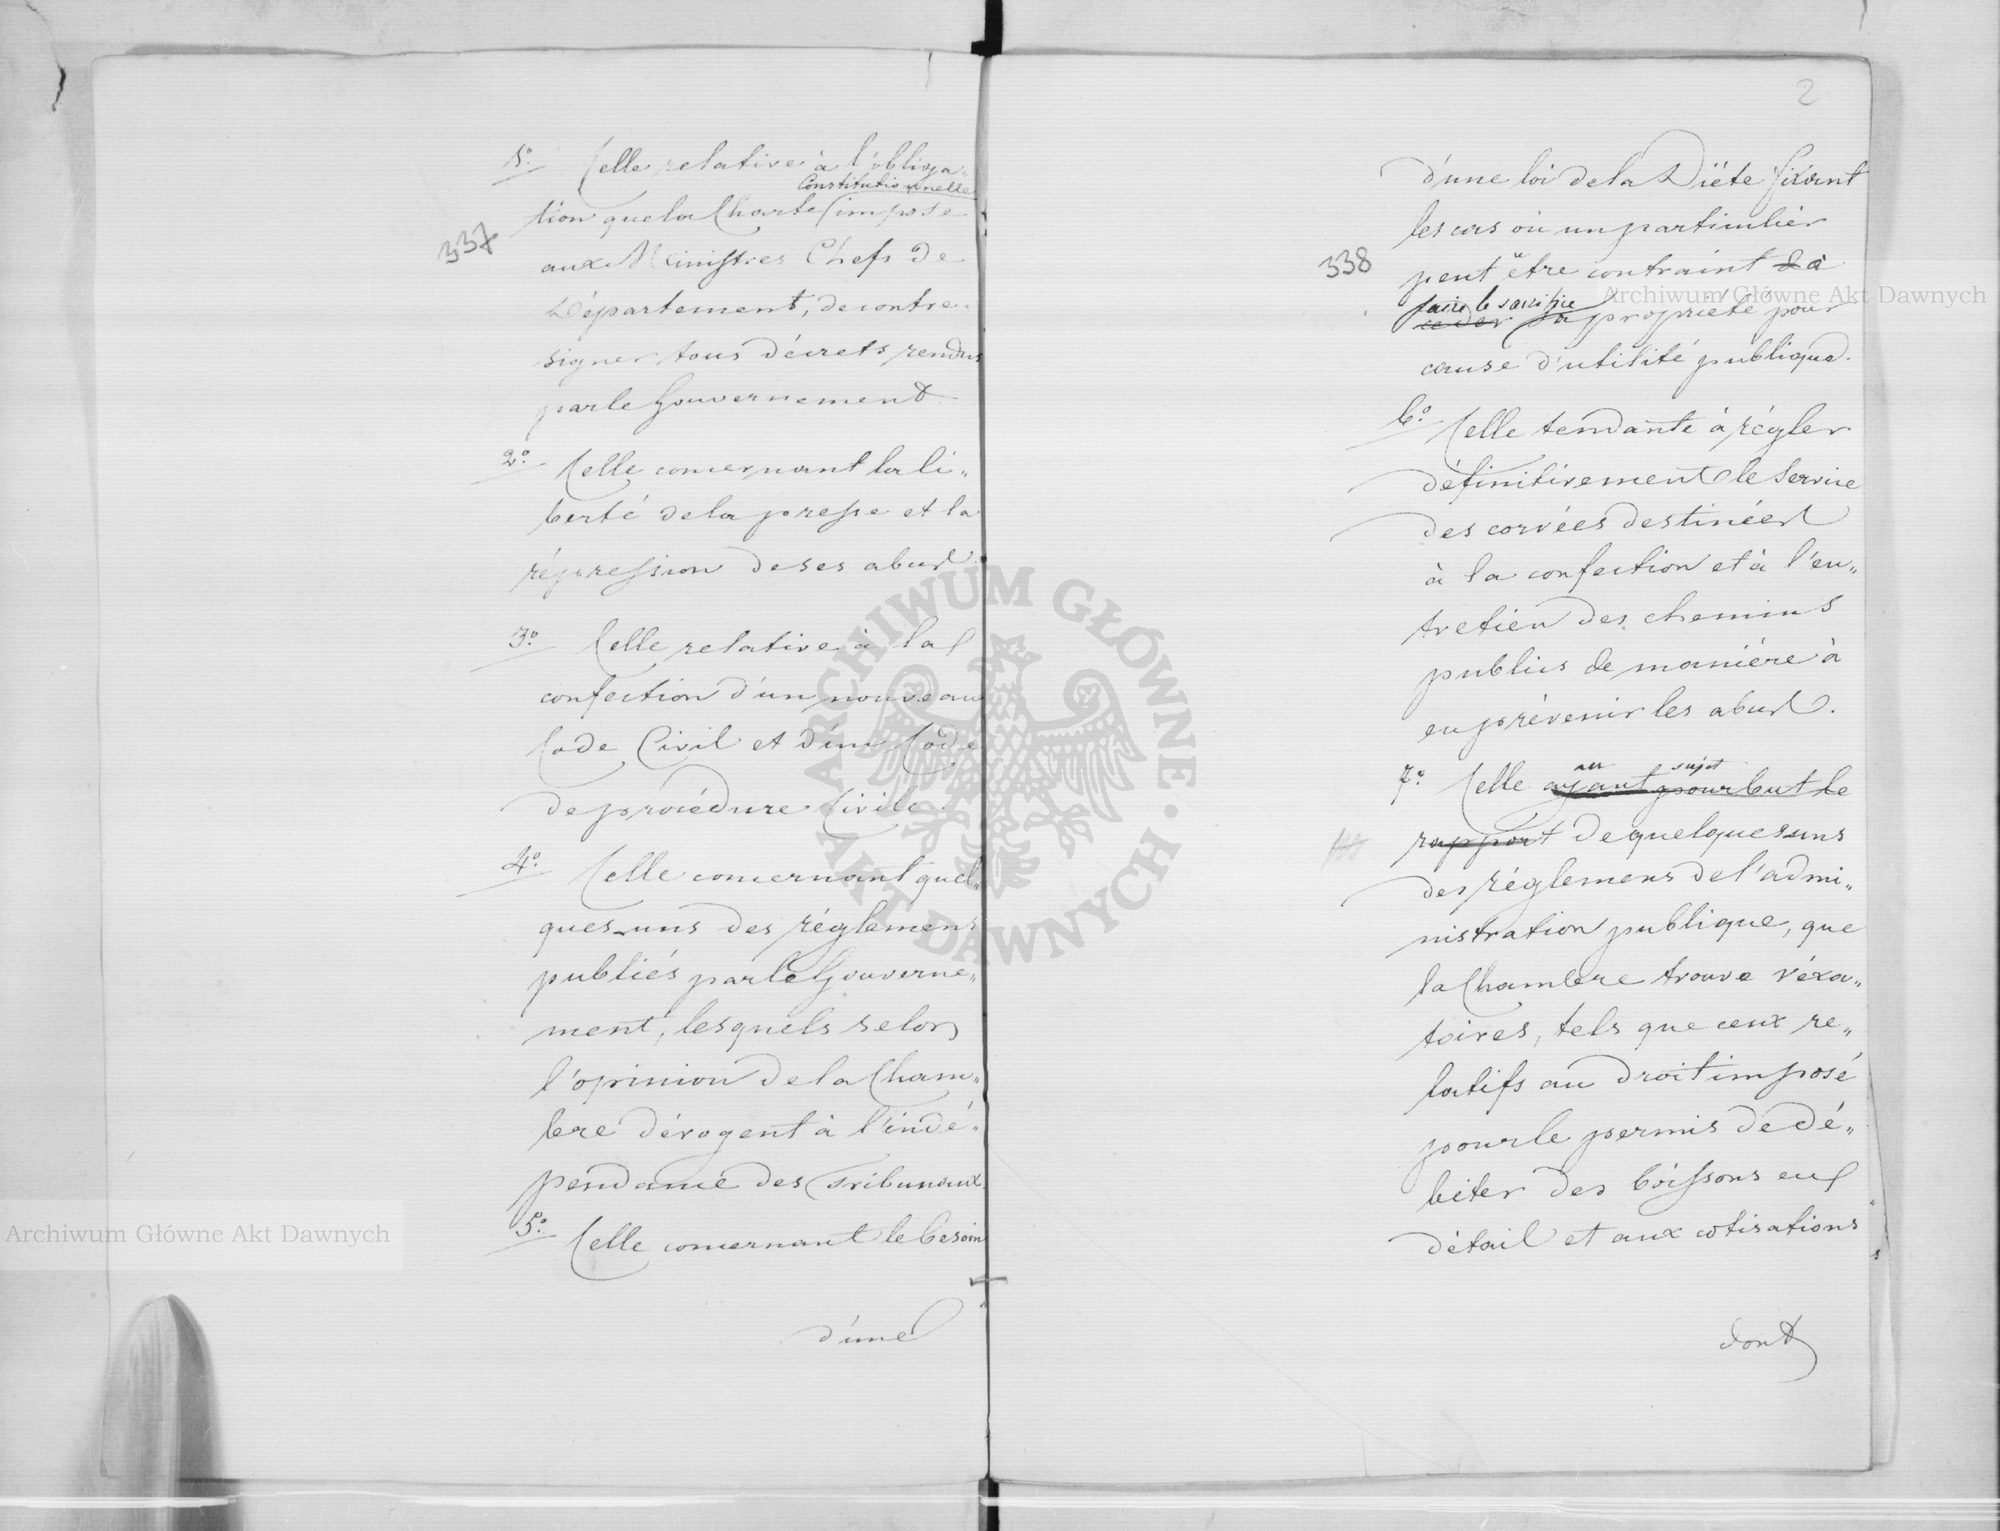 1.° Celle relative à l'obliga„
Constitutionnelle
tion que la Charte impose
337
aux Ministres Chefs de
Département, de contre„
signer tous décrets rendus
par le Gouvernement
2.° Celle concernant la li„
berté de la presse et la
répression de ses abus.
3.° Celle relative à la
confection d'un nouveau
Code Civil et d'un Code
de procédure Civile.
4.° Celle concernant quel„
ques-uns des réglemens
publiés par le Gouverne„
ment, lesquels selon
l'opinion de la Cham„
bre dérogent à l'indé„
pendance des Tribunaux.
5.° Celle concernant le besoin
d'une
2
d'une loi de la Diète fixant
les cas où un particulier
338
peut être contraint à
faire le sacrifice
ceder sa propriété pour
cause d'utilité publique.
6.° Celle tendante à régler
définitivement le service
des corvées destinées
à la confection et à l'en„
tretien des chemins
publics de manière à
en prévenir les abus.
au sujet
7.° Celle ayant pour but le
rapport de quelques-uns
des réglemens de l'admi„
nistration publique, que
la Chambre trouve véxa„
toires, tels que ceux re„
latifs au droit imposé
pour le permis de dé„
biter des boissons en
détail et aux cotisations
dont
Archiwum Główne Akt Dawnych
Archiwum Główne Akt Dawnych
ARCHIWUM GŁÓWNE AKT DAWNYCH